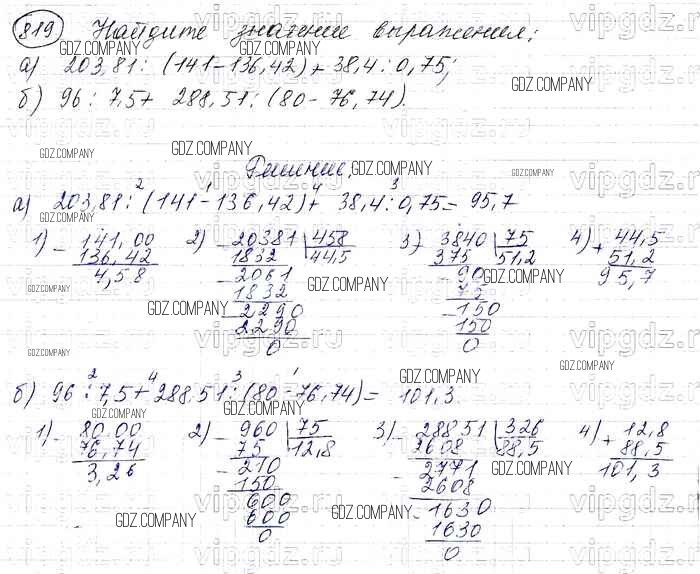 819 Найдите значение выражения:
а) 203,81 : (141 - 136,42) + 38,4 : 0,75;
б) 96 : 7,5 + 288,51 : (80 - 76,74).
Решение.
2 1 4 3
а) 203,81 : (141 - 136,42) + 38,4 : 0,75 = 95,7
1) - 141,00 2) - 20381 | 458 3) - 3840 | 75 4) + 44,5
136,42 1832 44,5 375 51,2 51,2
4,58 - 2061 - 90 95,7
1832 75
- 2290 - 150
2290 150
0 0
2 4 3 1
б) 96 : 7,5 + 288,51 : (80 - 76,74) = 101,3.
1) - 80,00 2) - 960 | 75 3) - 28851 | 326 4) + 12,8
76,74 75 12,8 2608 88,5 88,5
3,26 - 210 - 2771 101,3
150 2608
600 - 1630
600 1630
0 0
GDZ.COMPANY
vipgdz.ru